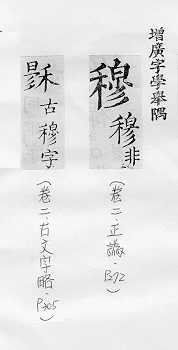 增廣字學舉隅
穆穆非
(卷二.正譌.P372)
𥝩古穆字
(卷二.古文字略.P305)